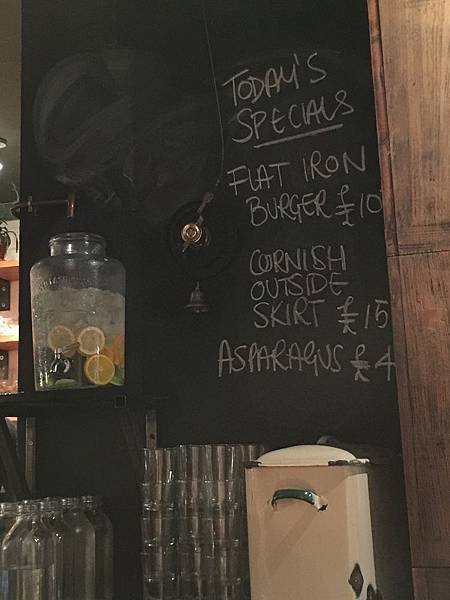 TODAY'S
SPECIALS
FLAT IRON
BURGER £10
CORNISH
OUTSIDE
SKIRT £15
ASPARAGUS £4